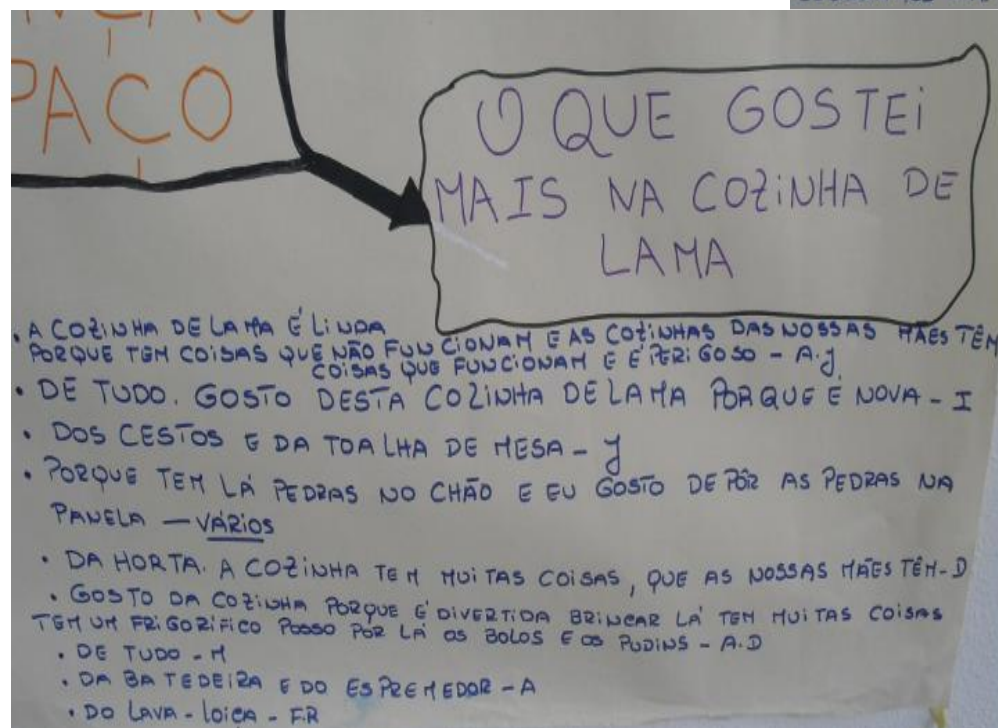 PAÇO
O QUE GOSTEI
MAIS NA COZINHA DE
LAMA
. A COZINHA DE LAMA É LINDA
PORQUE TEM COISAS QUE NÃO FUNCIONAM E AS COZINHAS DAS NOSSAS MÃES TÊM
COISAS QUE FUNCIONAM E É PERIGOSO - A.J.
• DE TUDO. GOSTO DESTA COZINHA DE LAMA PORQUE É NOVA - I
• DOS CESTOS E DA TOALHA DE MESA - J
• PORQUE TEM LÁ PEDRAS NO CHÃO E EU GOSTO DE PÔR AS PEDRAS NA
PANELA — VÁRIOS
• DA HORTA. A COZINHA TEM MUITAS COISAS, QUE AS NOSSAS MÃES TÊM - D
• GOSTO DA COZINHA PORQUE É DIVERTIDA BRINCAR LÁ TEM MUITAS COISAS
TEM UM FRIGORIFICO POSSO POR LÁ OS BOLOS E OS PUDINS - A.D
• DE TUDO - M
• DA BATEDEIRA E DO ESPREMEDOR - A
• DO LAVA-LOIÇA - F.R